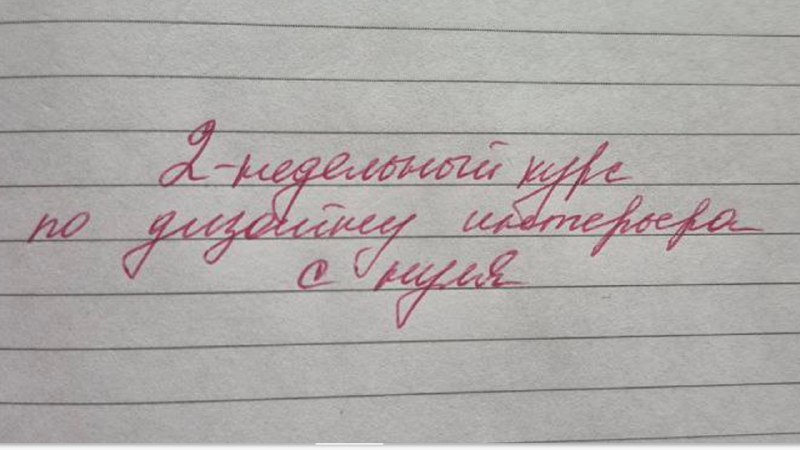 2-недельный курс
по дизайну интерьера
с нуля